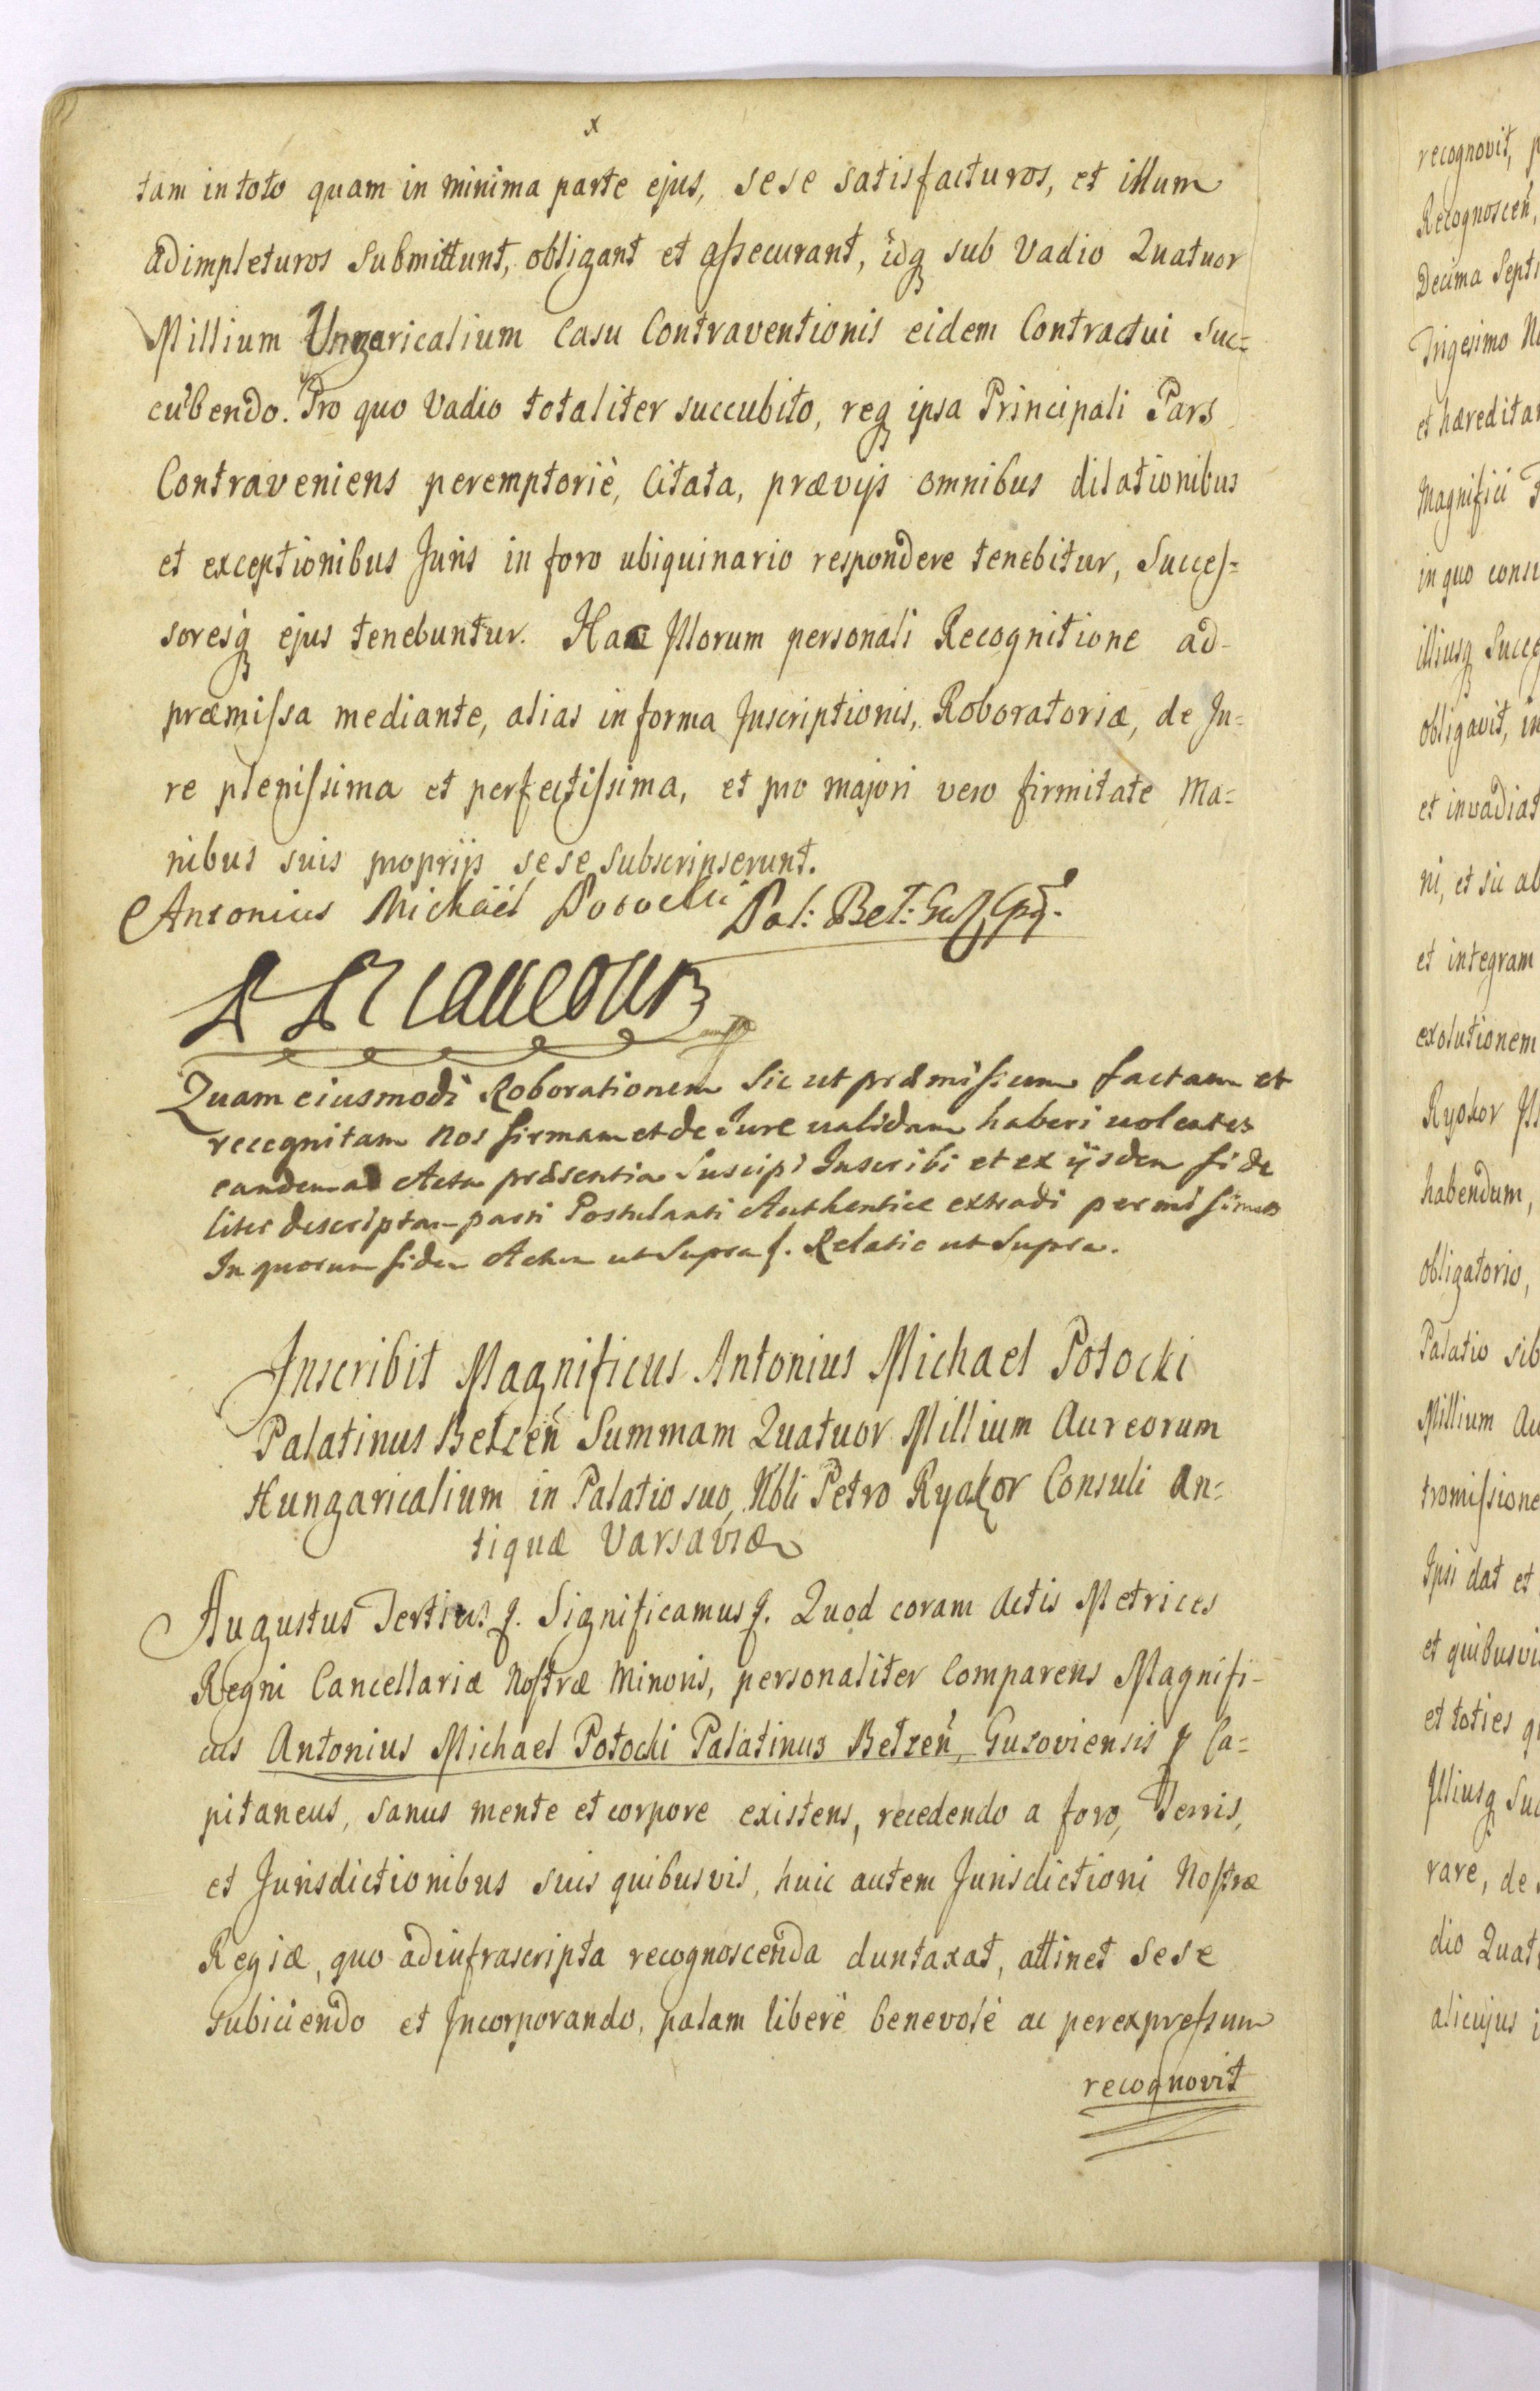 x
tam in toto quam in minima parte ejus, sese satisfacturos, et illum
adimpleturos Submittunt, obligant et assecurant, idq sub Vadio Quatuor
Millium Ungaricalium Casu Contraventionis eidem Contractui suc=
cubendo. Pro quo Vadio totaliter succubito, req ipsa Principali Pars
Contraveniens peremptoriè, Citata, prævijs omnibus dilationibus
et exceptionibus Juris in foro ubiquinario respondere tenebitur, Succes=
soresq ejus tenebuntur. Hac Illorum personali Recognitione ad
præmissa mediante, alias in forma Inscriptionis, Roboratoriæ, de Ju=
re plenissima et perfectissima, et pro majori vero firmitate Ma=
nibus suis proprijs sese subscripserunt.
Antonius Michaël Potocki Pal: Bel:
Quam eiusmodi Roborationem Sic ut præmissum factam et
recognitam Nos firmam et de Jure validam haberi volentes
eandem ad Acta præsentia Suscipi Inscribi et ex ijsdem fide
liter descriptam parti Postulanti Authentice extradi permisimus
In quorum fidem Actum ut Supra f. Relatio ut Supra.
Inscribit Magnificus Antonius Michael Potocki
Palatinus Belzeñ Summam Quatuor Millium Aureorum
Hungaricalium in Palatio suo, Nbli Petro Ryakor Consuli An=
tiquæ Varsaviæ
Augustus Tertius f. Significamus f. Quod coram Actis Metrices
Regni Cancellariæ Nostræ Minoris, personaliter Comparens Magnifi-
cus Antonius Michael Potocki Palatinus Belzeñ, Guzoviensis f Ca=
pitaneus, sanus mente et corpore existens, recedendo a foro, Terris,
et Jurisdictionibus suis quibusvis, huic autem Jurisdictioni Nostræ
Regiæ, quo ad infrascripta recognoscenda duntaxat, attinet sese
subiciendo et Incorporando, palam liberè benevolè ac per expressum
recognovit
recognovit,
Recognosceñ,
Decima Septi
Trigesimo
et hæredita
Magnifici
in quo
illiusq Succe
obligavit, in
et invadiat
ni, et sic ab
et integram
exolutionem
Ryokor
habendum,
obligatorio,
Palatio sib
Millium Au
tromissione
Ipsi dat et
et quibusvi
et toties
Illiusq Suc
rare, de
dio Quat
alicujus